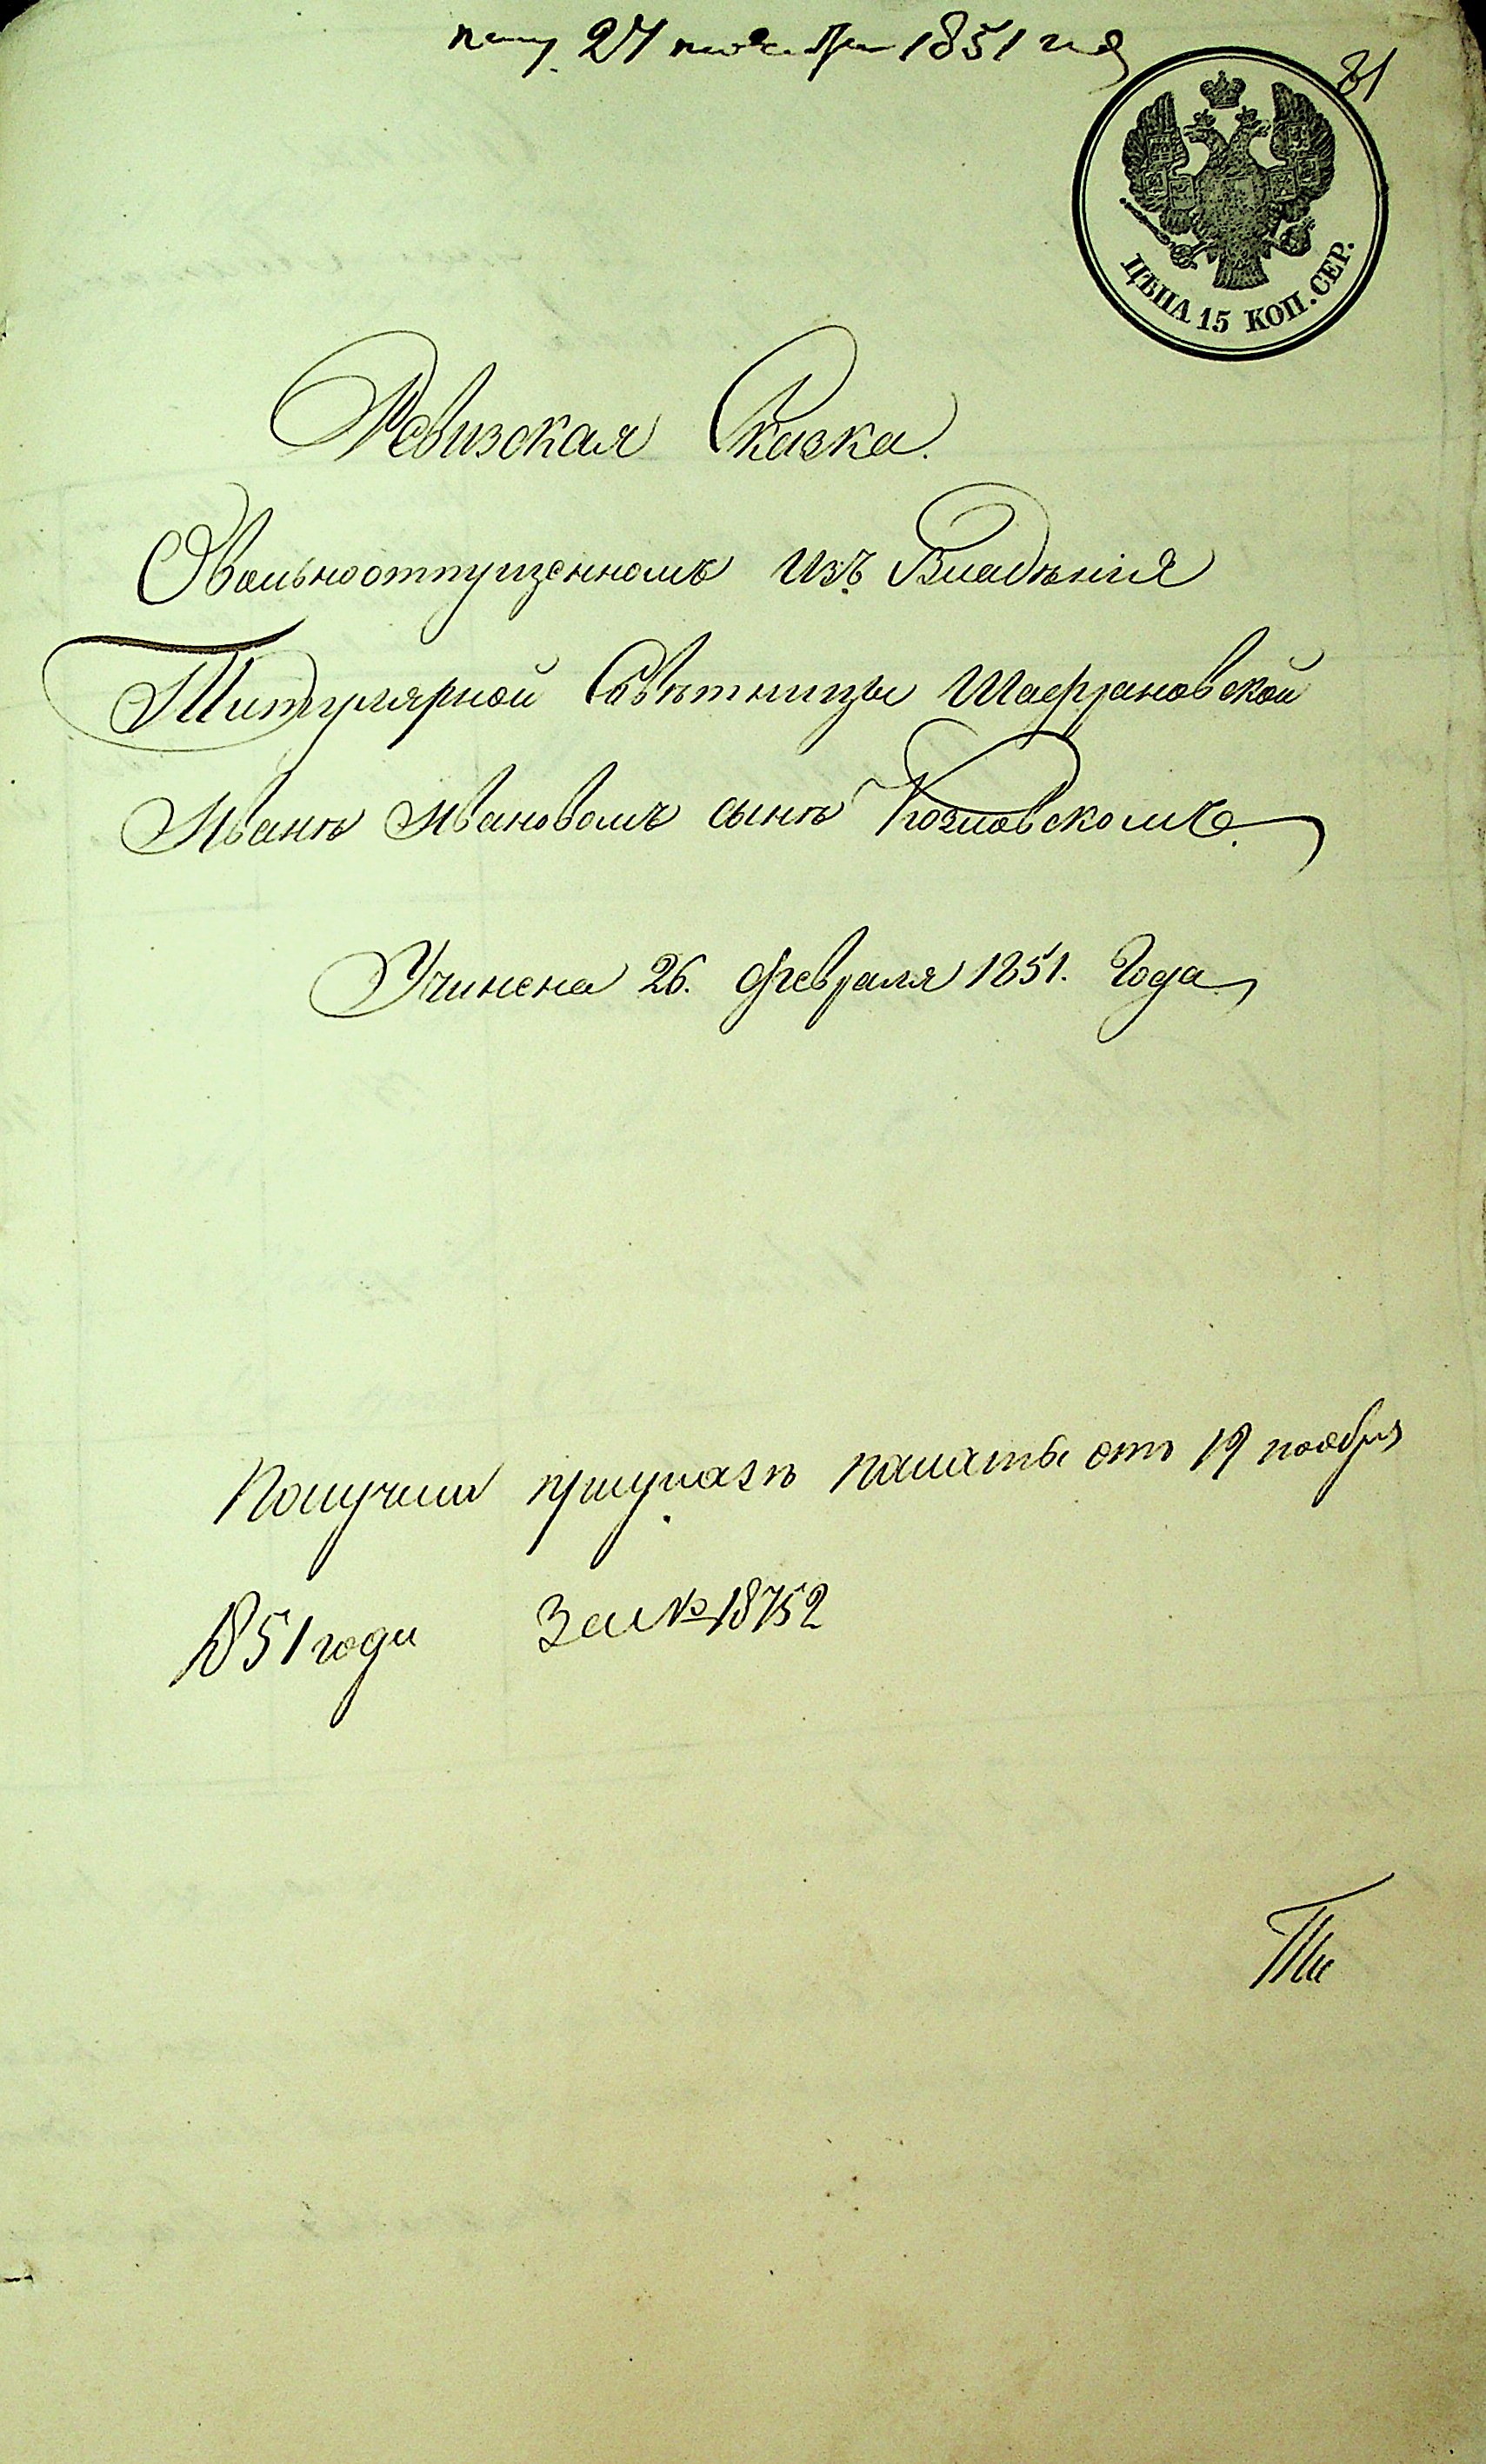 пол. 27 ноября 1851 года
31
ЦѢНА 15 КОП. СЕР.
Ревизская Сказка.
О вольноотпущенномъ изъ Владѣнія
Титулярной Совѣтницы Шафрановской
Иванѣ Ивановомъ сынѣ Козловскомъ.
Учинена 26. февраля 1851. Года
Получена при указѣ палаты отъ 19 ноября
1851 года За № 18752
Ти